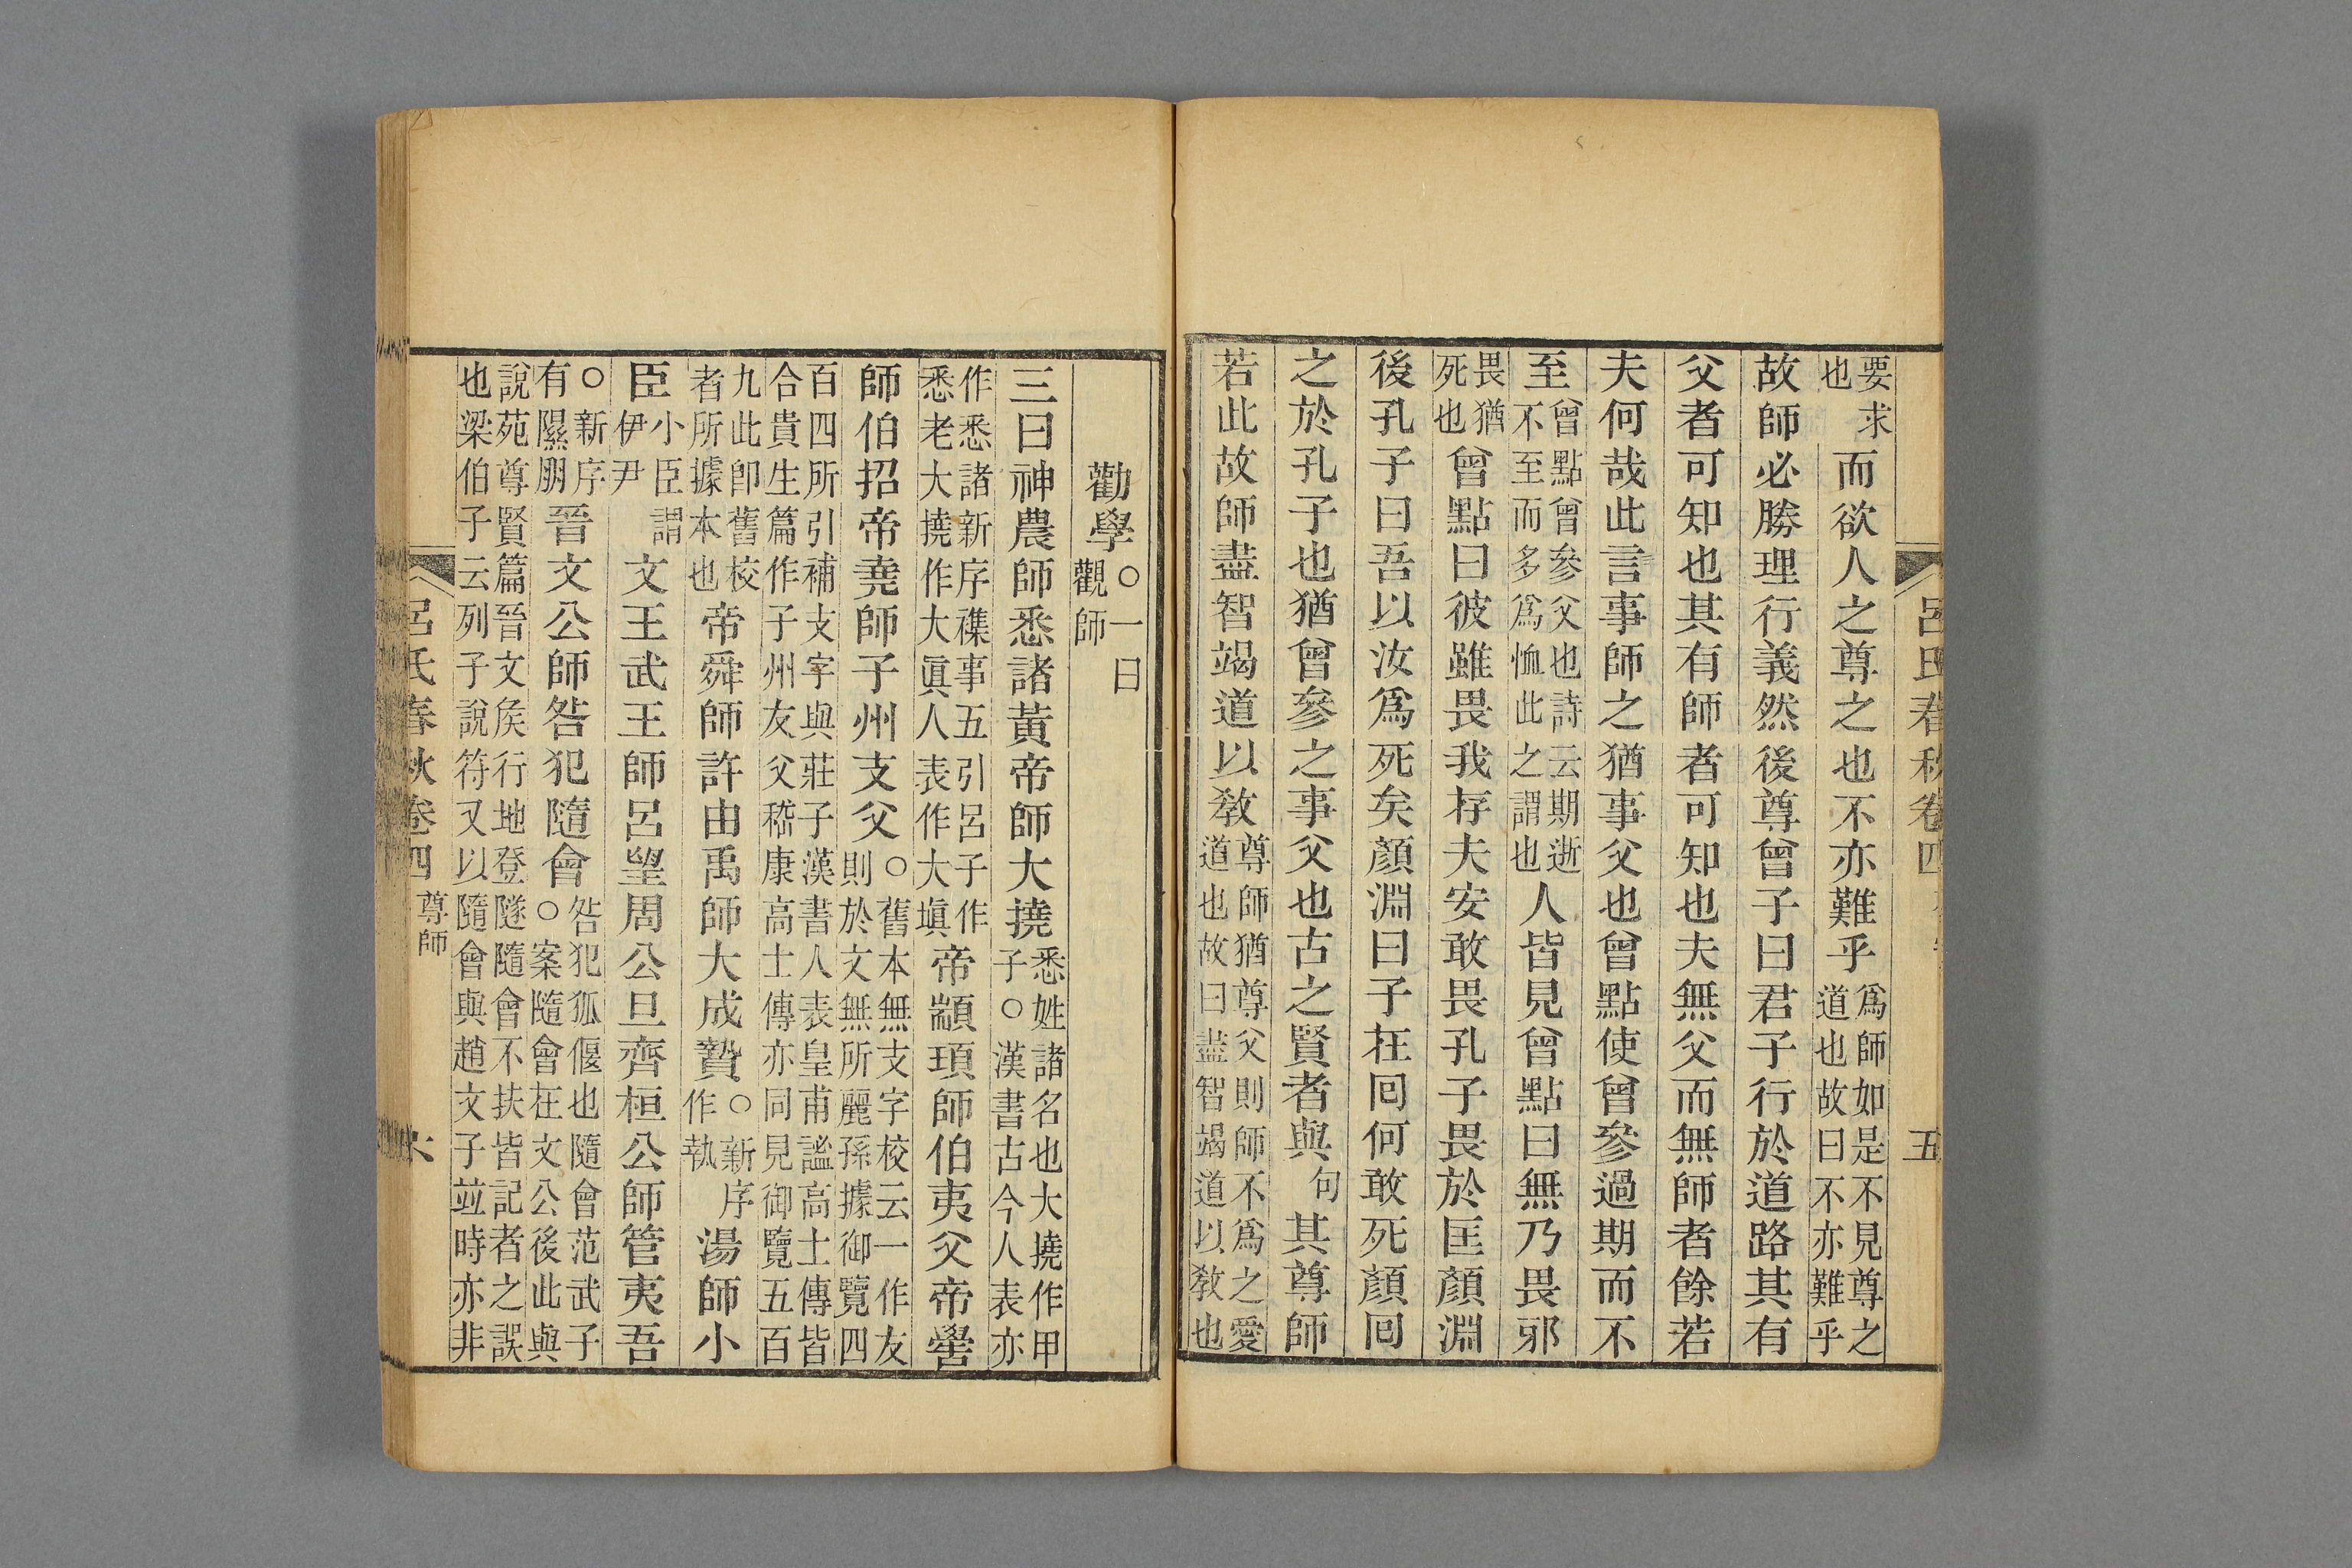 呂氏春秋卷四 五
要求也而欲人之尊之也不亦難乎爲師如是不見尊之道也故曰不亦難乎
故師必勝理行義然後尊曾子曰君子行於道路其有
父者可知也其有師者可知也夫無父而無師者餘若
夫何哉此言事師之猶事父也曾點使曾參過期而不
至曾點曾參父也詩云期逝不至而多爲恤此之謂也人皆見曾點曰無乃畏邪
畏猶死也曾點曰彼雖畏我存夫安敢畏孔子畏於匡顏淵
後孔子曰吾以汝爲死矣顏淵曰子在回何敢死顏回
之於孔子也猶曾參之事父也古之賢者與句其尊師
若此故師盡智竭道以敎尊師猶尊父則師不爲之愛道也故曰盡智竭道以敎也
勸學○一曰觀師
三曰神農師悉諸黃帝師大撓悉姓諸名也大撓作甲子○漢書古今人表亦
作悉諸新序襍事五引呂子作悉老大撓作大眞人表作大塡帝顓頊師伯夷父帝嚳
師伯招帝堯師子州支父○舊本無支字校云一作友則於文無所麗孫據御覽四
百四所引補支字與莊子漢書人表皇甫謐高士傳皆合貴生篇作子州友父嵇康高士傳亦同見御覽五百
九此卽舊校者所據本也帝舜師許由禹師大成贄○新序作執湯師小
臣小臣謂伊尹文王武王師呂望周公旦齊桓公師管夷吾
○新序有隰朋晉文公師咎犯隨會咎犯狐偃也隨會范武子○案隨會在文公後此與
說苑尊賢篇晉文矦行地登隧隨會不扶皆記者之誤也梁伯子云列子說符又以隨會與趙文子竝時亦非
呂氏春秋卷四 尊師 六